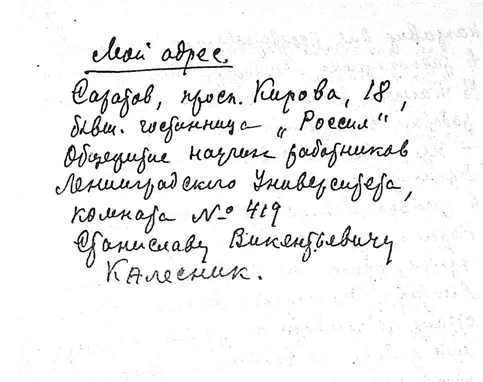 Мой адрес.
Саратов, просп. Кирова, 18,
бывш. гостинница „Россия"
Общежитие научн. работников
Ленинградского Университета,
комната № 419
Станиславу Викентьевичу
Калесник.